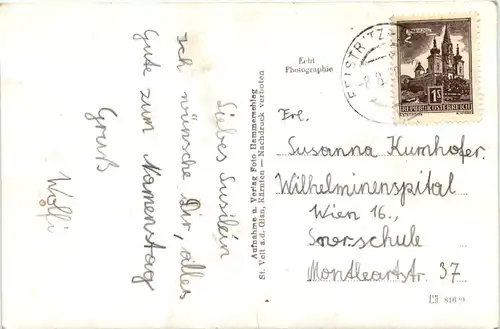 Liebes Susilein
Ich wünsche Dir, alles
Gute zum Namenstag
Gruß
Wolfi
Aufnahme u. Verlag Foto Hammerschlag
St. Veit a.d. Glan, Kärnten — Nachdruck verboten
Echt
Photographie
FEISTRITZ
REPUBLIK ÖSTERREICH
1S
Frl.
Susanna Kurnhofer
Wilhelminenspital
Wien 16.,
Montleartstr. 37